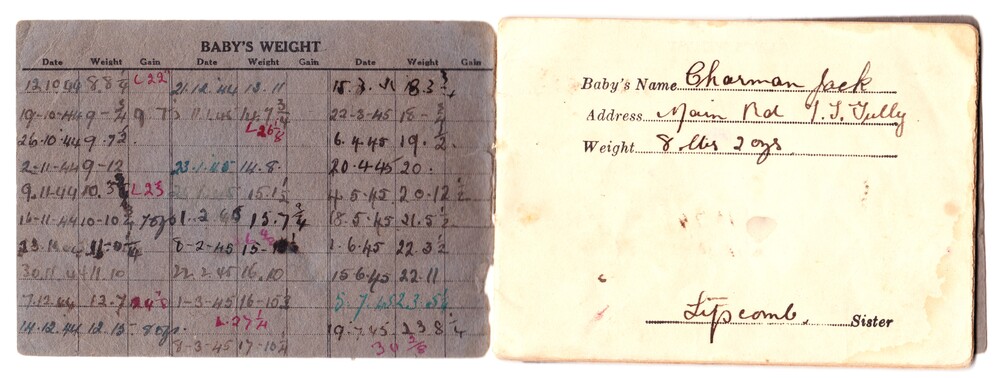 BABY'S WEIGHT
Date Weight Gain Date Weight Gain Date Weight Gain
12.10.44 8.8¾ L22 21.12.44 13.11 15.3.45 18.3¾
19-10-44 9-¾ 14.7¾ 22-3-45 18-
L26⅛
26.10.44 9-7½ 6.4.45 19.2½
2-11-44 9-12 23.1.45 14.8. 20-4-45 20.
9.11.44 10.3 L23 15.15 4.5.45 20.12½
16-11-44 10-10¾ 7ozs 1.2.45 15.7¾ 18.5.45 21.5½
8-2-45 15- 1.6.45 22.3½
30.11.44 11.10 22.2.45 16.10 15.6.45 22.11
7.12.44 12.7 1-3-45 16-10½ 5.7.45 23.5½
14.12.44 12.15 8ozs. L27¼ 19.7.45 23 8¼
8-3-45 17-10¼ 30
Baby's Name Charman Jack
Address Main Rd Tully
Weight 8 lbs 2 ozs
Lipscomb. Sister